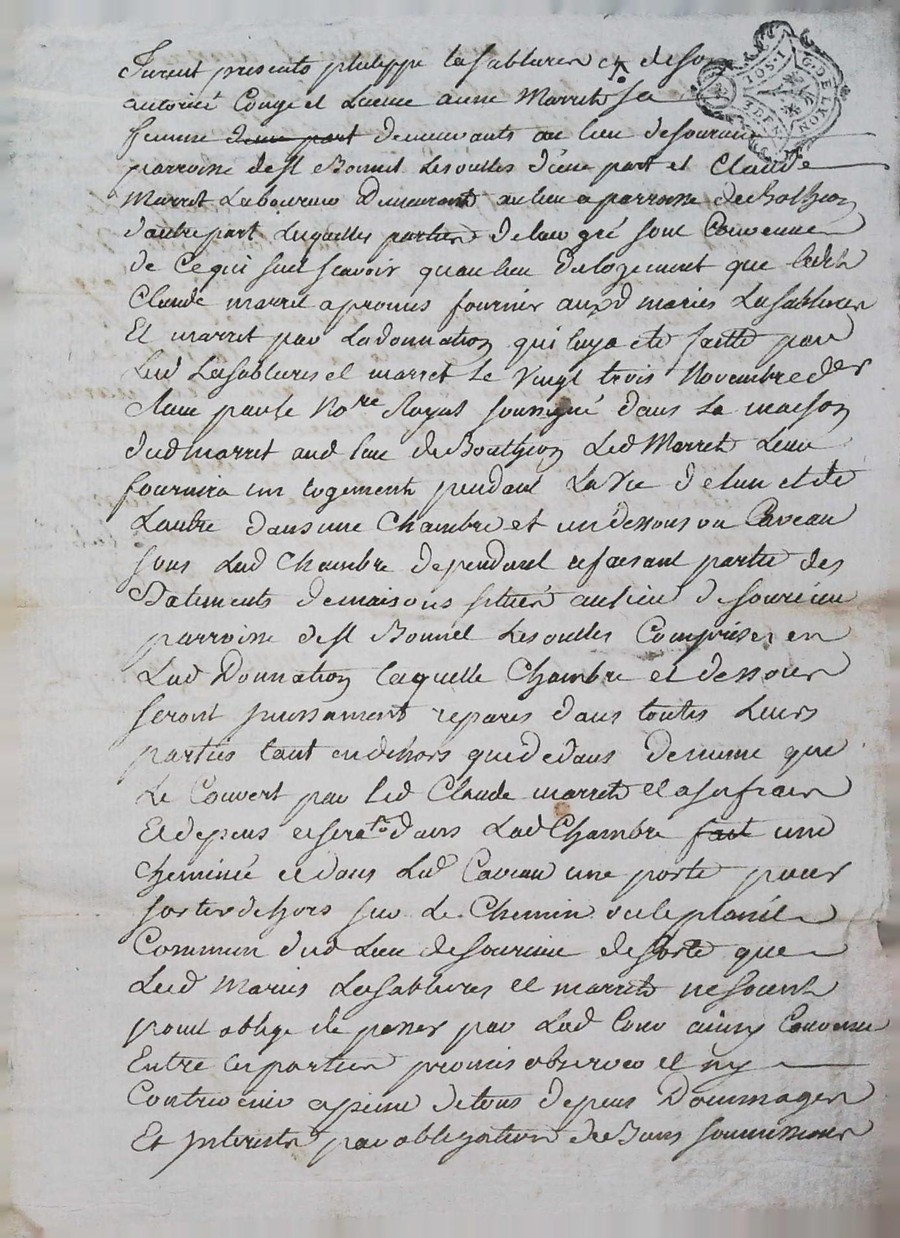 furent presents philippe lasablieres et de son
autorité Congé et Licence anne Marret sa
femme d'une part demeurants au lieu de sourcieu
parroisse de st Bonnet Les oulles d'une part et Claude
Marret Laboureur Demeurant au lieu et parroisse de Bothéon
d'autre part Lesquelles parties de leur gré sont Convenues
de Ce qui suit scavoir qu'au lieu du logement que ledit
Claude marret a promis fournir auxd maries Lasablieres
Et marret par La donnation qui luy a eté faitte par
Lesd Lasablieres et marret Le Vingt trois Novembre der
par le Nore Royal soussigné dans La maison
dud marret aud lieu de Bouthéon Led Marret Leur
fournira un logement pendant La Vie de l'un et de
Lautre dans une Chambre et un dessous ou Caveau
sous Lad Chambre dependant et faisant partie des
Batiments de maisons situés au lieu de sourcieu
parroisse de st Bonnet Les oulles Comprises en
Lad Donnation laquelle Chambre et dessous
seront reparés dans toutes Leurs
parties tant en dehors que dedans de meme que
Le Couvert par led Claude marret et a ses frais
Et depens et sera dans Lad Chambre fait une
Cheminée et dans Led Caveau une porte pour
sortir dehors sur Le Chemin
Commun dud Lieu de sourcieu de sorte que
Lesd Mariés Lasablieres et marret ne soient
point obligé de passer par Lad Cour ainsy Convenu
Entre les parties promis observer et n'y
Contrevenir a peine de tous depens Dommages
Et Interets par obligation de Biens soumissions
G. DE LYON